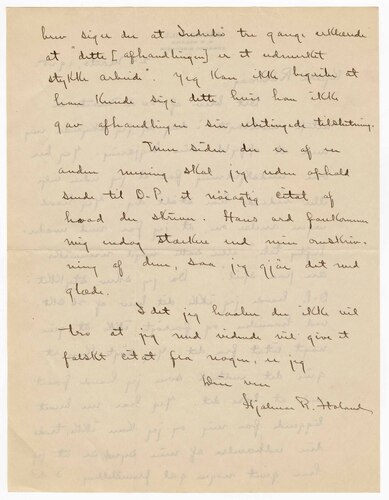 brev siger du at Indrebø tre gange erklærede
at "dette [afhandlingen] er et udmerket
stykke arbeide". Jeg kan ikke begribe at
han kunde sige dette hvis han ikke
gav afhandlingen sin ubetingede tilslutning.
Men siden du er af en
anden mening skal jeg uden ophold
sende til O.P. et nøiagtig citat af
hvad du skrev. Hans ord forekommer
mig endog stærkere end min omskriv-
ning af dem, saa jeg gjør det med
glæde.
Idet jeg haaber du ikke vil
tro at jeg med vidende vil give et
falskt citat fra nogen, er jeg
Din ven
Hjalmar R. Holand